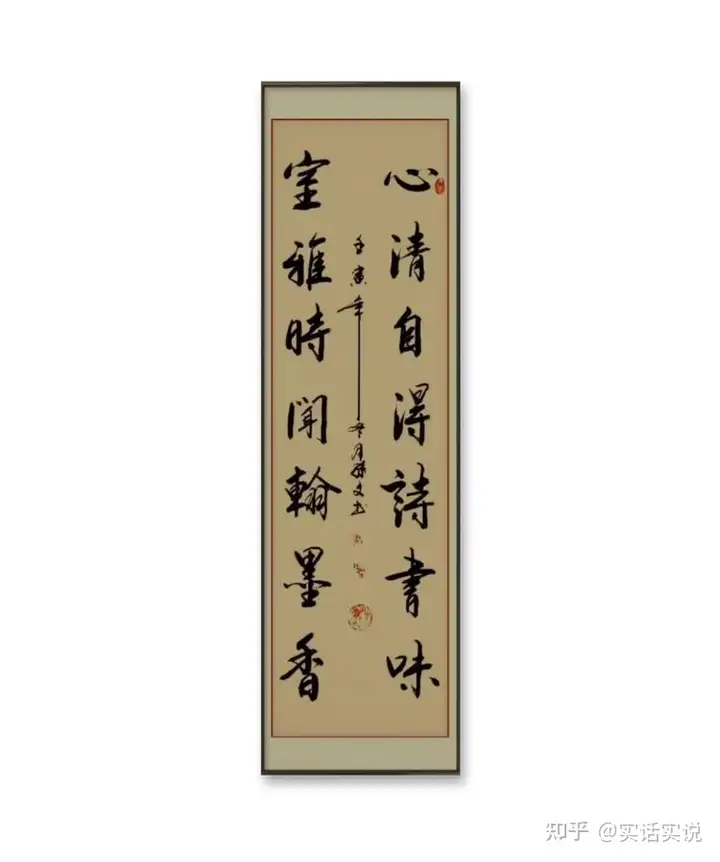 心清自得詩書味
室雅時聞翰墨香
壬寅年冬月文书
知乎 @实话实说